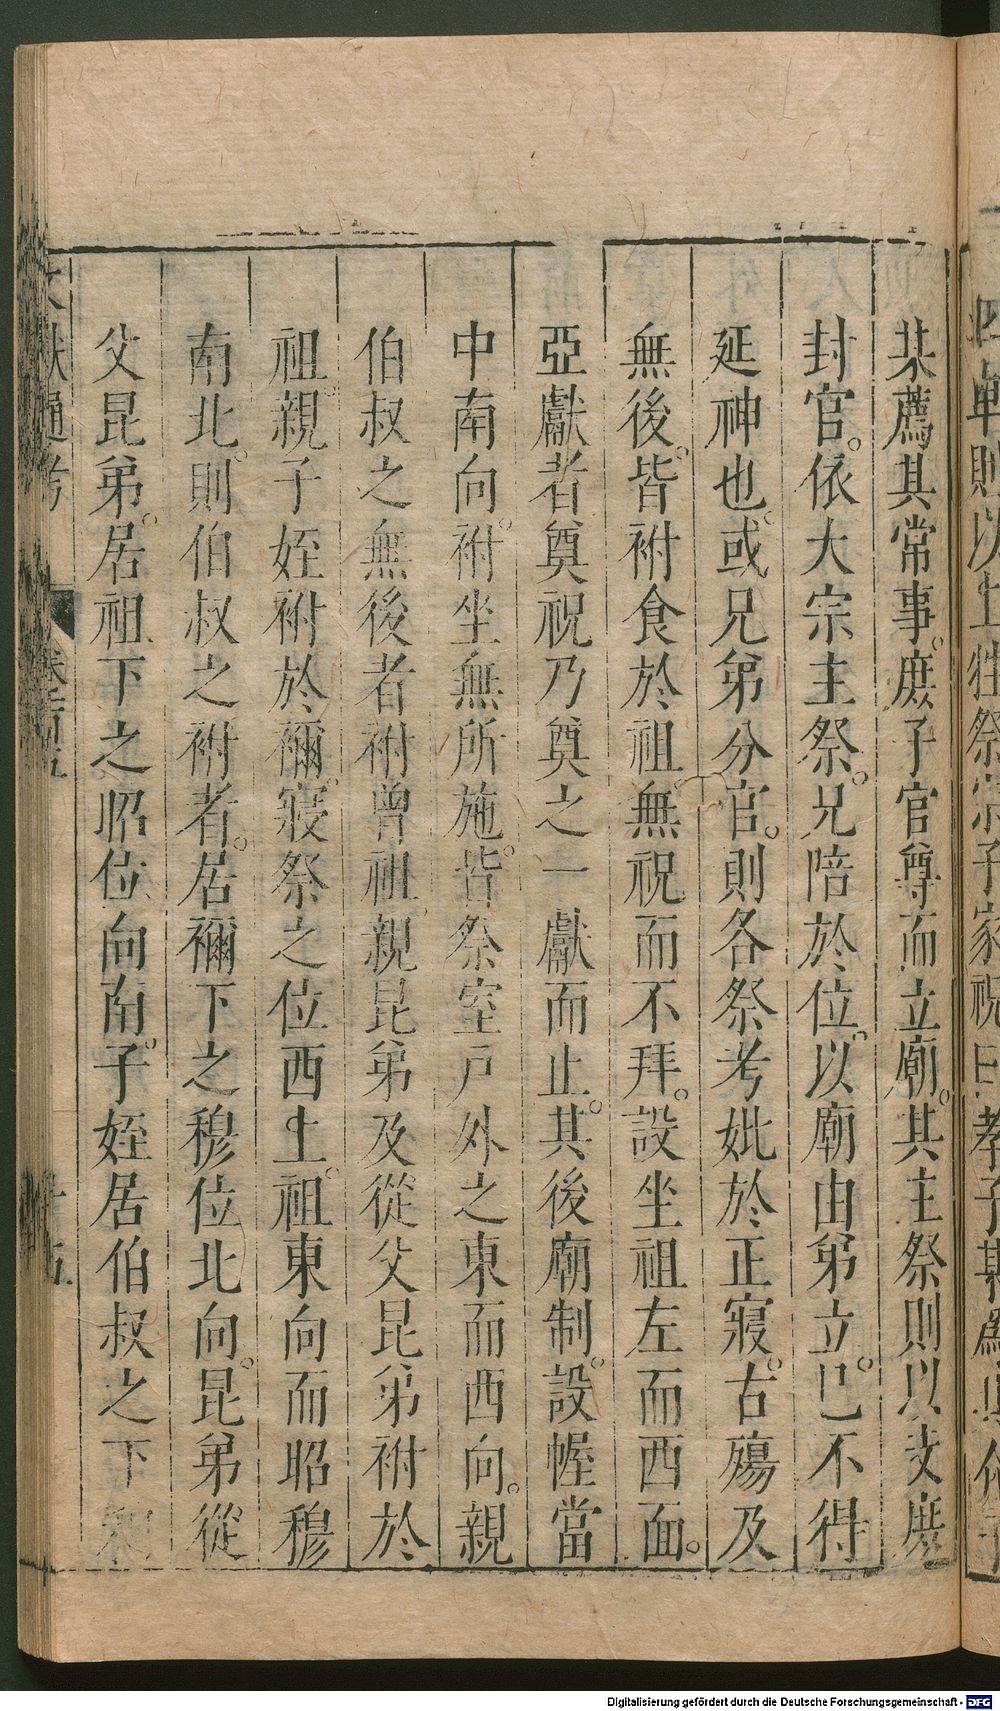 某薦其常事。庶子官尊而立廟。其主祭則以支庶
封官。依大宗主祭。兄陪於位。以廟由弟立。已不得
延神也。或兄弟分官。則各祭考妣於正寢。古殤及
無後。皆祔食於祖。無祝而不拜。設坐祖左而西面。
亞獻者奠祝乃奠之一獻而止。其後廟制。設幄當
中南向。祔坐無所施。皆祭室戶外之東而西向。親
伯叔之無後者祔曾祖。親昆弟及從父昆弟祔於
祖。親子姪祔於禰。寢祭之位西上。祖東向而昭穆
南北。則伯叔之祔者。居禰下之穆位北向。昆弟從
父昆弟。居祖下之昭位向南。子姪居伯叔之下
文獻通考
十五
Digitalisierung gefördert durch die Deutsche Forschungsgemeinschaft - DFG